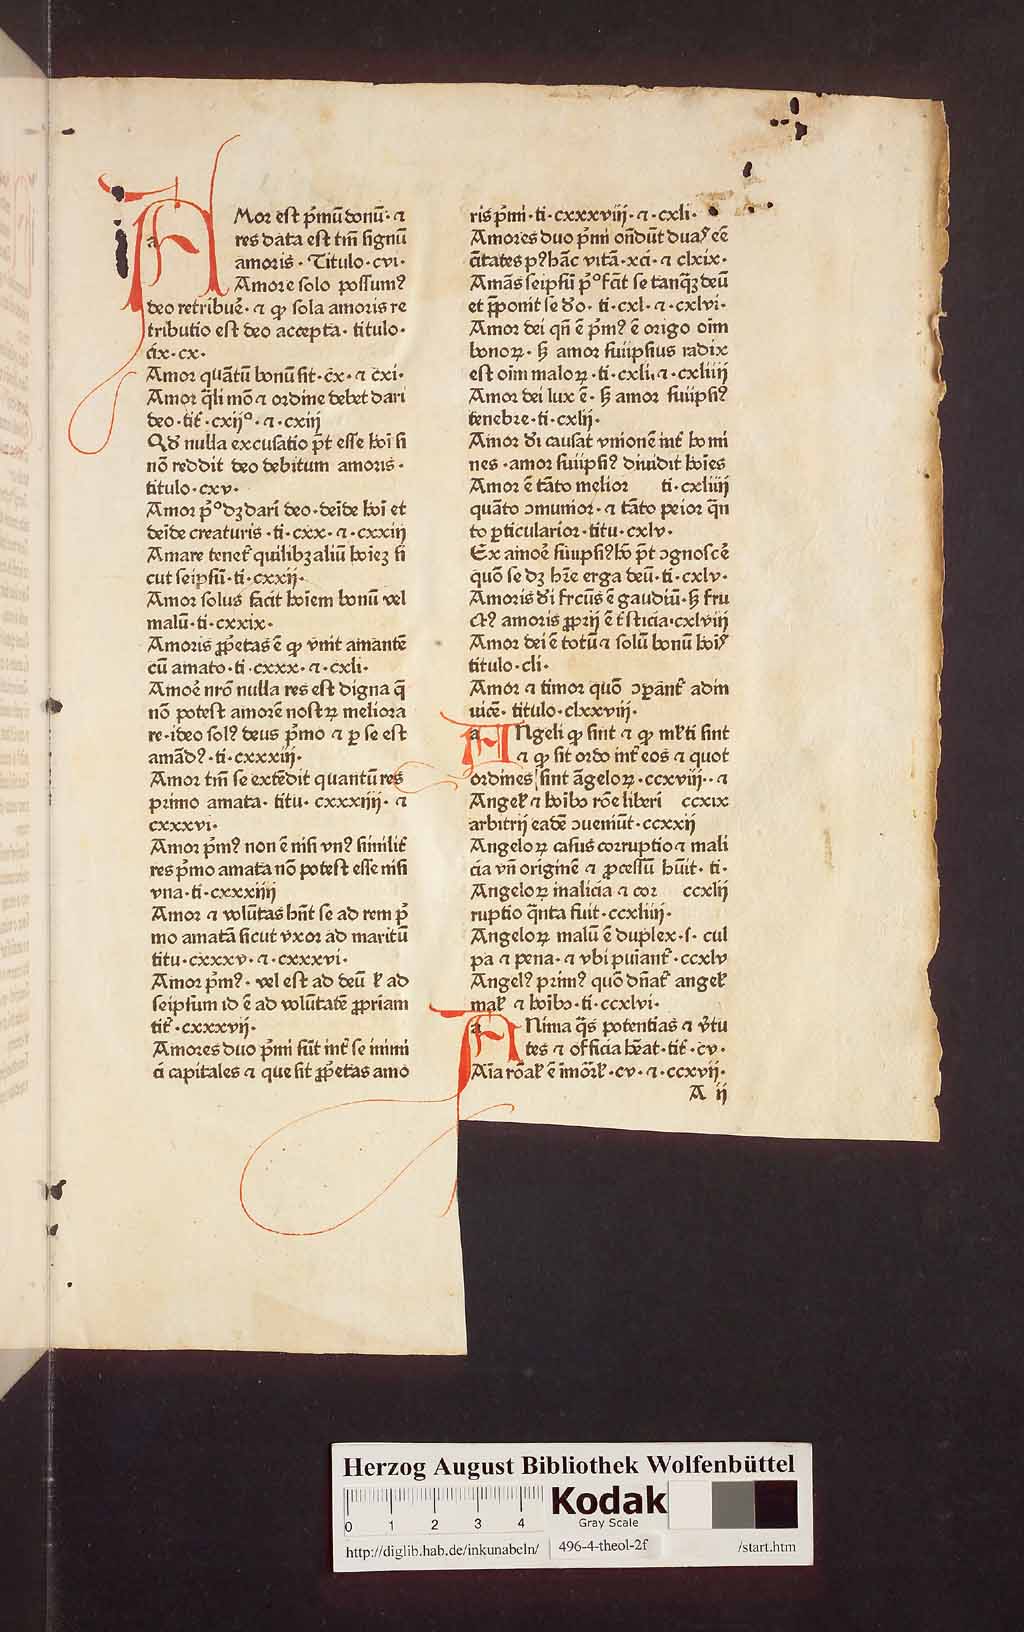 AMor est p̄mū donū· ⁊
res data est tm̄ signū
amoris · Titulo · cvi ·
Amore solo possumꝰ
deo retribuē · ⁊ ꝙ sola amoris re
tributio est deo accepta · titulo ·
cix · cx ·
Amor quātū bonū sit · cx · ⁊ cxi ·
Amor q̄li mō ⁊ ordine debet dari
deo · tit̄ · cxijº · ⁊ cxiij
Qđ nulla excusatio p̄t esse hoī si
nō reddit deo debitum amoris ·
titulo · cxv ·
Amor p̄º dꝫ dari deo · deīde hoī et
deīde creaturis · ti · cxx · ⁊ · cxxiij
Amare tenet̄ quilibꝫ aliū hoīeꝫ si
cut seipsū · ti · cxxij ·
Amor solus facit hoīem bonū vel
malū · ti · cxxix ·
Amoris ꝓp̄etas ē ꝙ vnit amantē
cū amato · ti · cxxx · ⁊ · cxli ·
Amoē nrō nulla res est digna q̄
nō potest amorē nostꝝ meliora
re · ideo solꝰ deus p̄mo ⁊ ꝑ se est
amādꝰ · ti · cxxxiij ·
Amor tm̄ se extēdit quantū res
primo amata · titu · cxxxiiij · ⁊
cxxxvi ·
Amor p̄mꝰ non ē nisi vnꝰ similit̄
res p̄mo amata nō potest esse nisi
vna · ti · cxxxiiij
Amor ⁊ volūtas hn̄t se ad rem p̄
mo amatā sicut vxor ad maritū
titu · cxxxv · ⁊ · cxxxvi ·
Amor p̄mꝰ · vel est ad deū ł ad
seipsum id ē ad volūtatē ꝓpriam
tit̄ · cxxxvij ·
Amores duo p̄mi sūt int̄ se inimi
ci capitales ⁊ que sit ꝓp̄etas amo
ris p̄mi · ti · cxxxviij · ⁊ · cxli ·
Amores duo p̄mi on̄dūt duaꝰ eē
c̄itates pꝰ hāc vitā · xci · ⁊ clxix ·
Amās seipsū p̄º fc̄it se tanqꝫ deū
et p̄ponit se đo · ti · cxl · ⁊ · cxlvi ·
Amor dei qn̄ ē p̄mꝰ ē origo oīm
bonoꝝ · sꝫ amor suiipsius radix
est oīm maloꝝ · ti · cxli · ⁊ · cxliiij
Amor dei lux ē · sꝫ amor suiipsiꝰ
tenebre · ti · cxlij ·
Amor đi causat vnionē int̄ homi
nes · amor suiipsiꝰ diuidit hoīes
Amor ē tāto melior ti · cxliiij
quāto ꝯmunior · ⁊ tāto peior q̄n
to ꝑticularior · titu · cxlv ·
Ex amoē suiipsiꝰ hō p̄t ꝯgnoscē
quō se dꝫ hr̄e erga deū · ti · cxlv ·
Amoris đi frc̄us ē gaudiū · sꝫ fru
ctꝰ amoris ꝓprij ē t̄sticia · cxlviij
Amor dei ē totū ⁊ solū bonū hoīꝰ
titulo · cli ·
Amor ⁊ timor quō ꝯꝑānt̄ adin
uicē · titulo · clxxviij ·
ANgeli ꝙ sint ⁊ ꝙ ml̄ti sint
⁊ ꝙ sit ordo int̄ eos ⁊ quot
ordines sint āgeloꝝ · ccxviij · ⁊
Angeł ⁊ hoībꝫ rōe liberi ccxix
arbitrij eadē ꝯueniūt · ccxxij
Angeloꝝ casus corruptio ⁊ mali
cia vn̄ originē ⁊ ꝓcessū hūit · ti ·
Angeloꝝ malicia ⁊ cor ccxlij
ruptio q̄nta fuit · ccxliiij ·
Angeloꝝ malū ē duplex · s · cul
pa ⁊ pena · ⁊ vbi puīant̄ · ccxlv
Angelꝰ primꝰ quō dn̄at̄ angeł
mał ⁊ hoībꝫ · ti · ccxlvi ·
ANima q̄s potentias ⁊ v̄tu
tes ⁊ officia hēat · tit̄ · cv ·
Aīa rōał ē īmōrł · cv · ⁊ · ccxvij ·
A ij
Herzog August Bibliothek Wolfenbüttel
Kodak
Gray Scale
0 1 2 3 4
http://diglib.hab.de/inkunabeln/ 496-4-theol-2f /start.htm